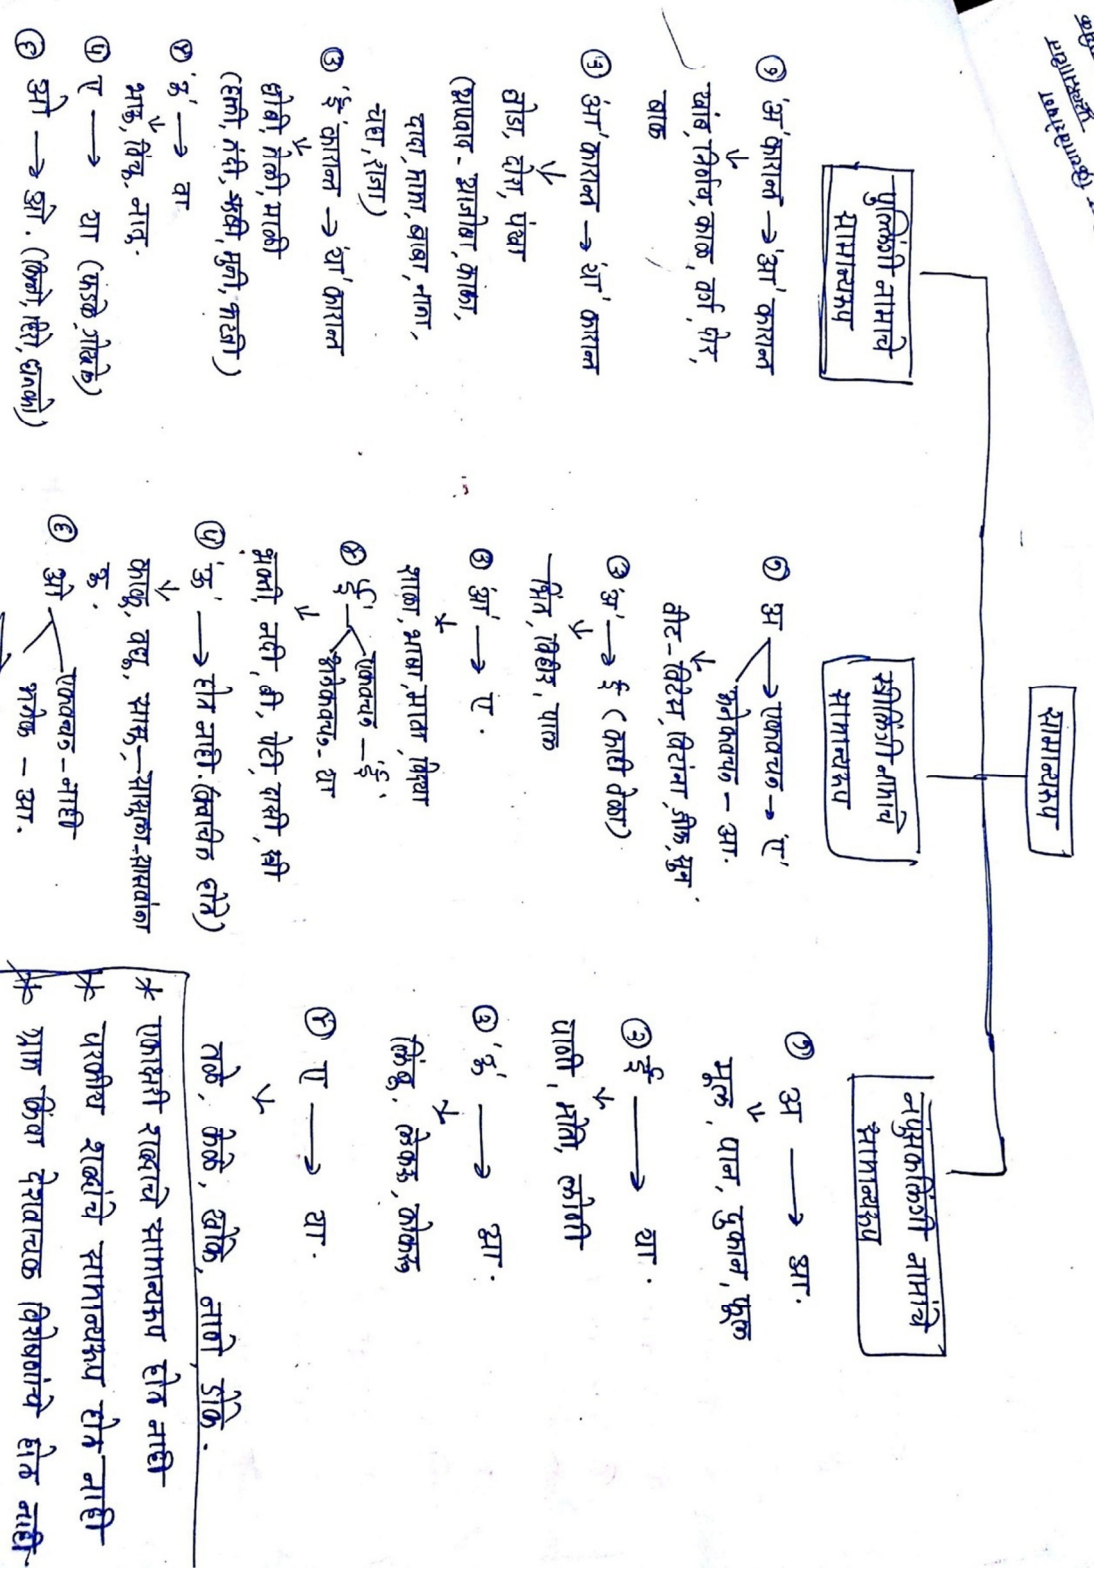 सामान्यरूप
पुल्लिंगी नामाचे
सामान्यरूप
① 'अ' कारान्त → 'आ' कारान्त
↓
खांब, निर्णय, काळ, कर्ण, पोर,
बाक
② 'आ' कारान्त → 'या' कारान्त
↓
घोडा, दोरा, पंखा
(अपवाद - आजोबा, काका,
दादा, मामा, बाबा, नाना,
चहा, राजा)
③ 'ई' कारान्त → 'या' कारान्त
↓
धोबी, तेली, माळी
(हत्ती, नंदी,
④ 'ऊ' → वा
↓
भाऊ, विंचू, नातू.
⑤ ए → या (फडके, गोखले)
⑥ ओ → ओ. (किलो, हिरो, धनको)
स्त्रीलिंगी नामाचे
सामान्यरूप
① अ → एकवचन → 'ए'
अनेकवचन - आ.
↓
वीट - विटेस, विटांना, जीभ, सून.
② 'अ' → ई (काही वेळा)
↓
भिंत, विहीर, पाल
③ 'आ' → ए.
↓
शाळा, भाषा, माता, विद्या
④ ई एकवचन - 'ई'
अनेकवचन - या
↓
भक्ती, नदी, बी, पेटी, दासी, स्त्री
⑤ 'ऊ' → होत नाही. (क्वचित होते)
↓
काकू, वधू, सासू - सासूला - सासवांना
ऊ.
⑥ ओ एकवचन - नाही
अनेक - आ.
नपुंसकलिंगी नामांचे
सामान्यरूप
① अ → आ.
↓
मूल, पान, दुकान, फूल
② ई → या.
↓
पाणी, मोती, लोणी
③ 'ऊ' → आ.
↓
लिंबू, लेकरू, कोकरू
④ ए → या.
↓
तळे, केळे, खोके, नाणे डोके.
* एकाक्षरी शब्दाचे सामान्यरूप होत नाही
* परकीय शब्दांचे सामान्यरूप होत नाही
* ग्राम किंवा देशवाचक विशेषणांचे होत नाही